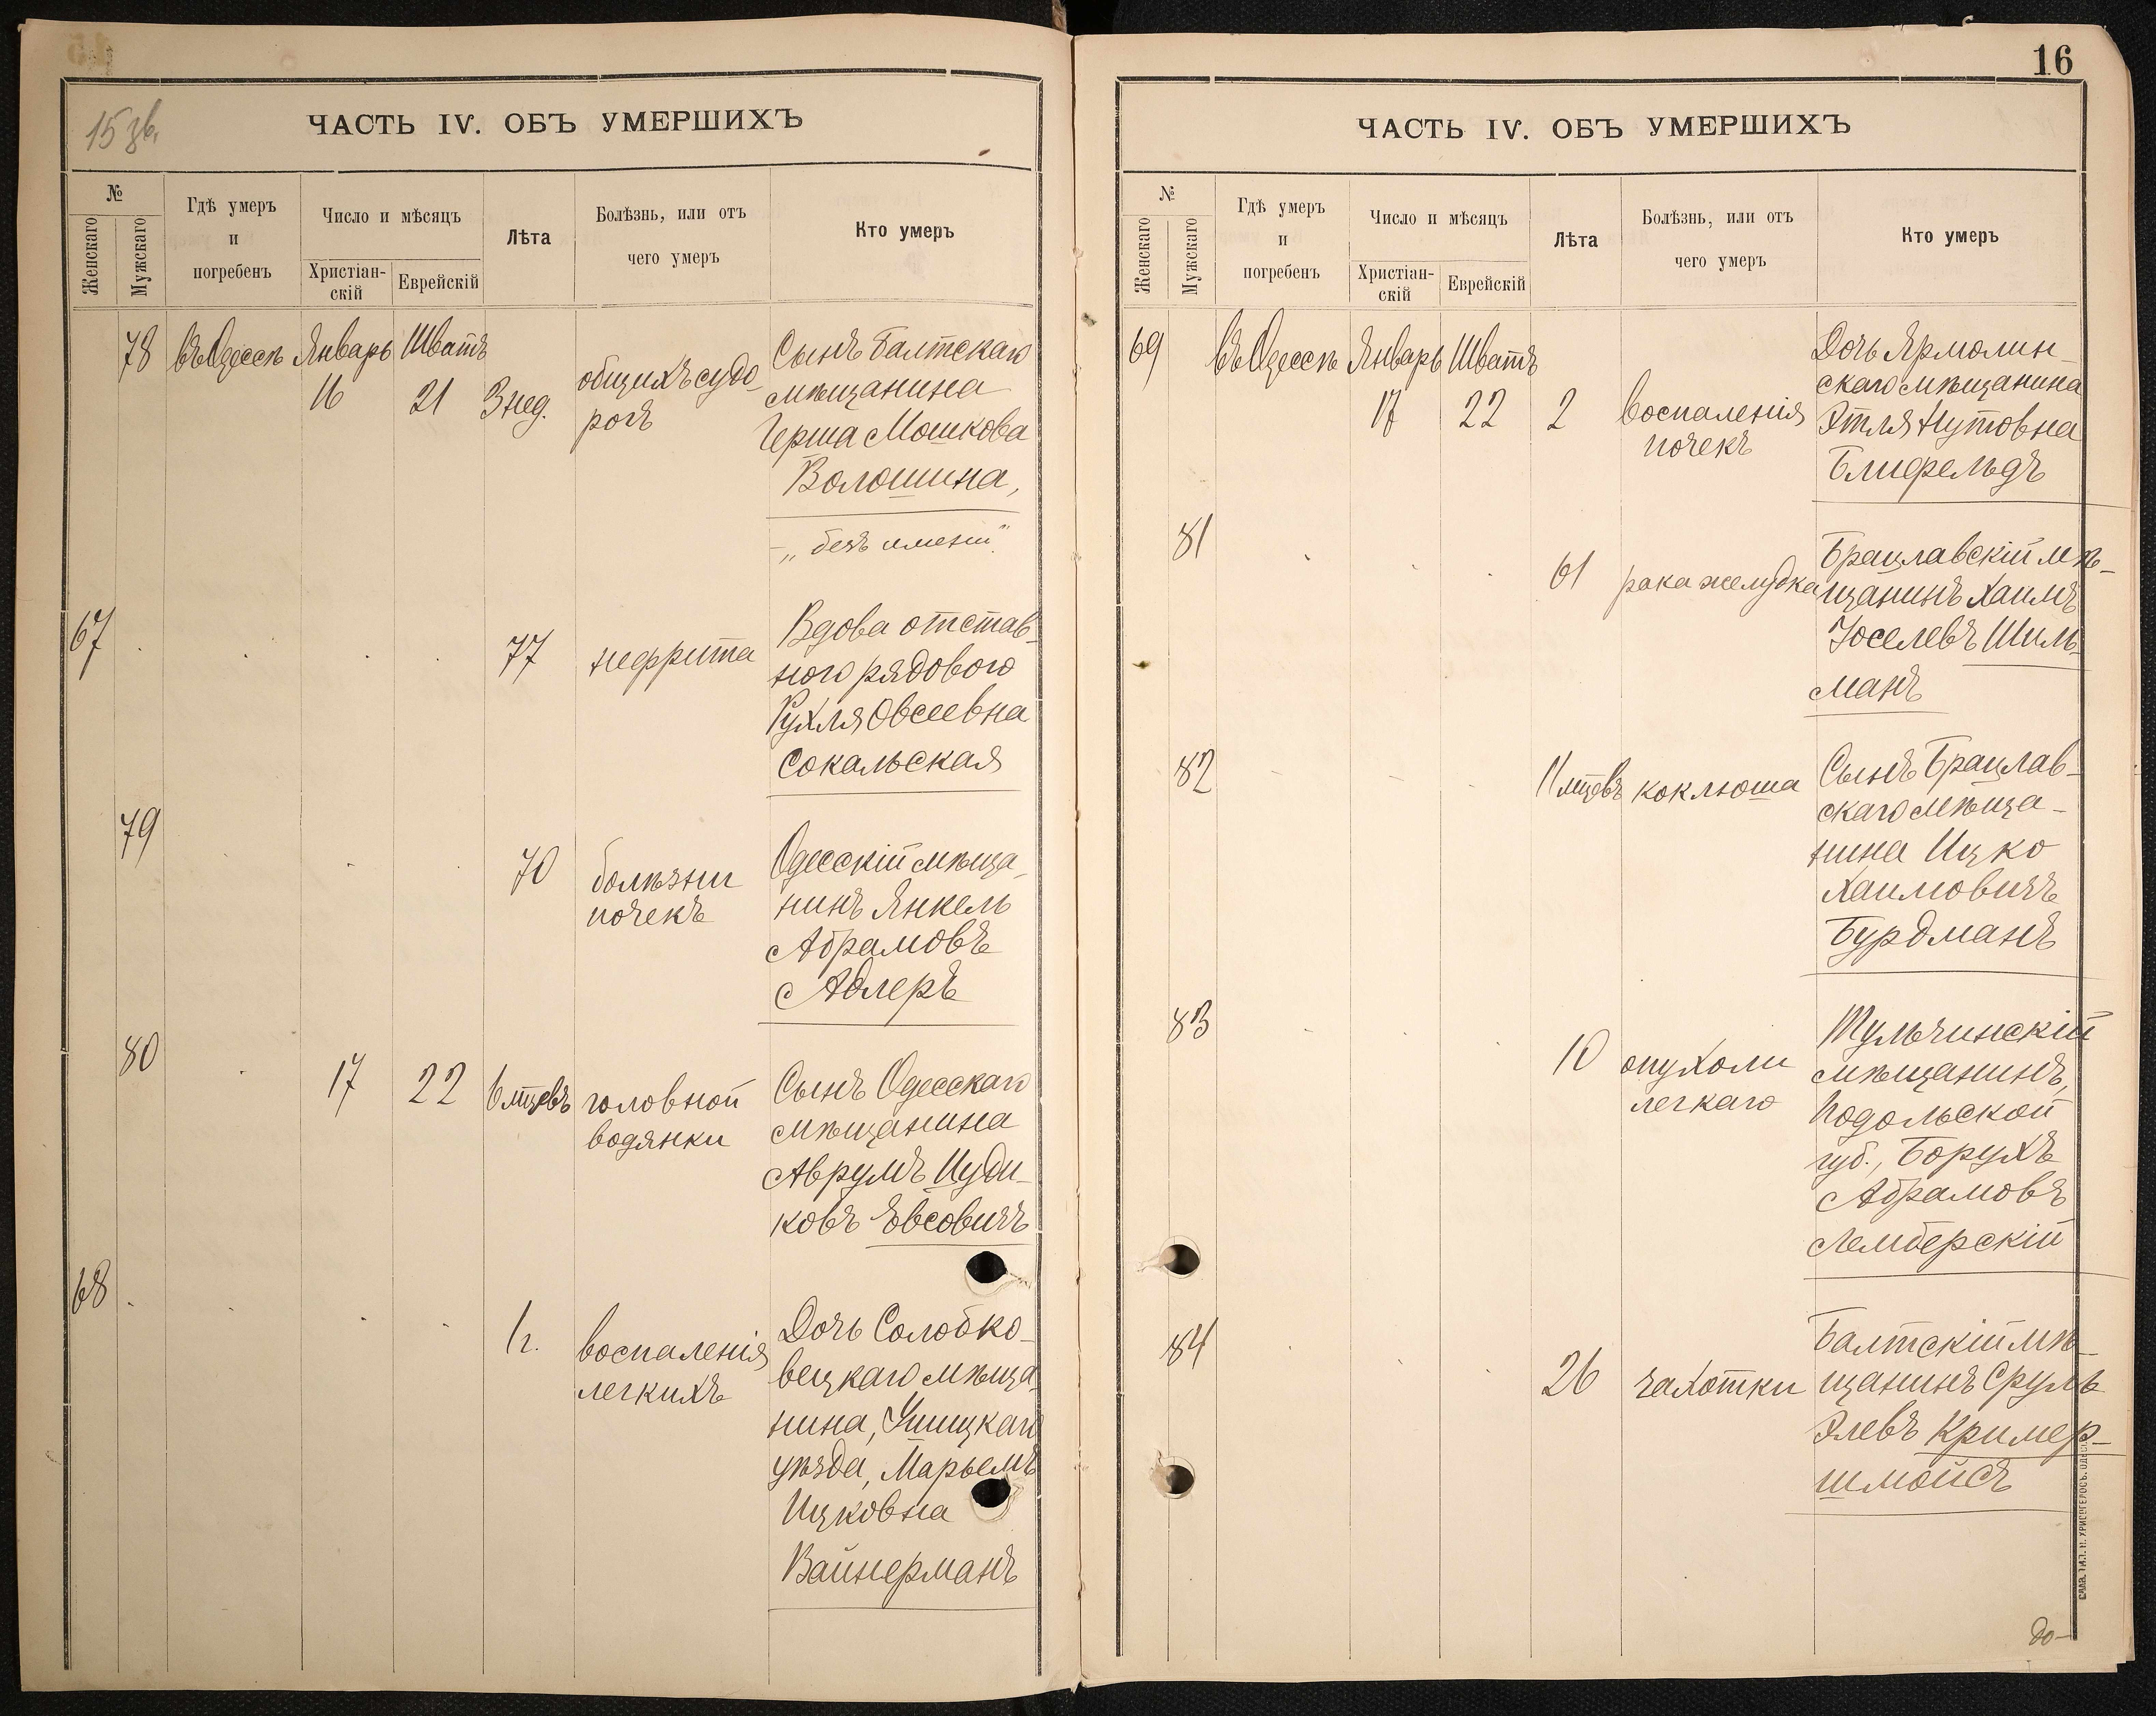 15 зв.
ЧАСТЬ IV. ОБЪ УМЕРШИХЪ
№
Женскаго
Мужскаго
Гдѣ умеръ
и
погребенъ
Число и мѣсяцъ
Христіан-
скій
Еврейскій
Лѣта
Болѣзнь, или отъ
чего умеръ
Кто умеръ
78 въ Одессѣ Январь Шватъ
16 21 3 нед.
общихъ судо-
рогъ
Сынъ Балтскаго
мѣщанина
Герша Мошкова
Волошина,
„безъ имени"
67
77 нефрита
Вдова отстав-
ного рядового
Рухля Овсеевна
Сокальская
79
70 болѣзни
почекъ
Одесскій мѣща-
нинъ Янкель
Абрамовъ
Адлеръ
80
17 22 6 мцевъ головной
водянки
Сынъ Одесскаго
мѣщанина
Аврумъ Иуди-
ковъ Евсовичъ
68
1 г. воспаленія
легкихъ
Дочь Солобко-
вецкаго мѣща-
нина, Ушицкаго
уѣзда, Марьемъ
Ицковна
Вайнерманъ
16
ЧАСТЬ IV. ОБЪ УМЕРШИХЪ
№
Женскаго
Мужскаго
Гдѣ умеръ
и
погребенъ
Число и мѣсяцъ
Христіан-
скій
Еврейскій
Лѣта
Болѣзнь, или отъ
чего умеръ
Кто умеръ
69 въ Одессѣ Январь Шватъ
17 22 2 воспаленія
почекъ
Дочь Ярмолин-
скаго мѣщанина
Этля Нутовна
Блифельдъ
81
61 рака желудка
Брацлавскій мѣ-
щанинъ Хаимъ
Іоселевъ Шиль-
манъ
82
11 мцевъ коклюша
Сынъ Брацлав-
скаго мѣща-
нина Ицко
Хаимовичъ
Бурдманъ
83
10 опухоли
легкаго
Тульчинскій
мѣщанинъ,
Подольской
губ., Борухъ
Абрамовъ
Лемберскій
84
26 чахотки
Балтскій мѣ-
щанинъ Сруль
Элевъ Кример-
шмойсъ
до-